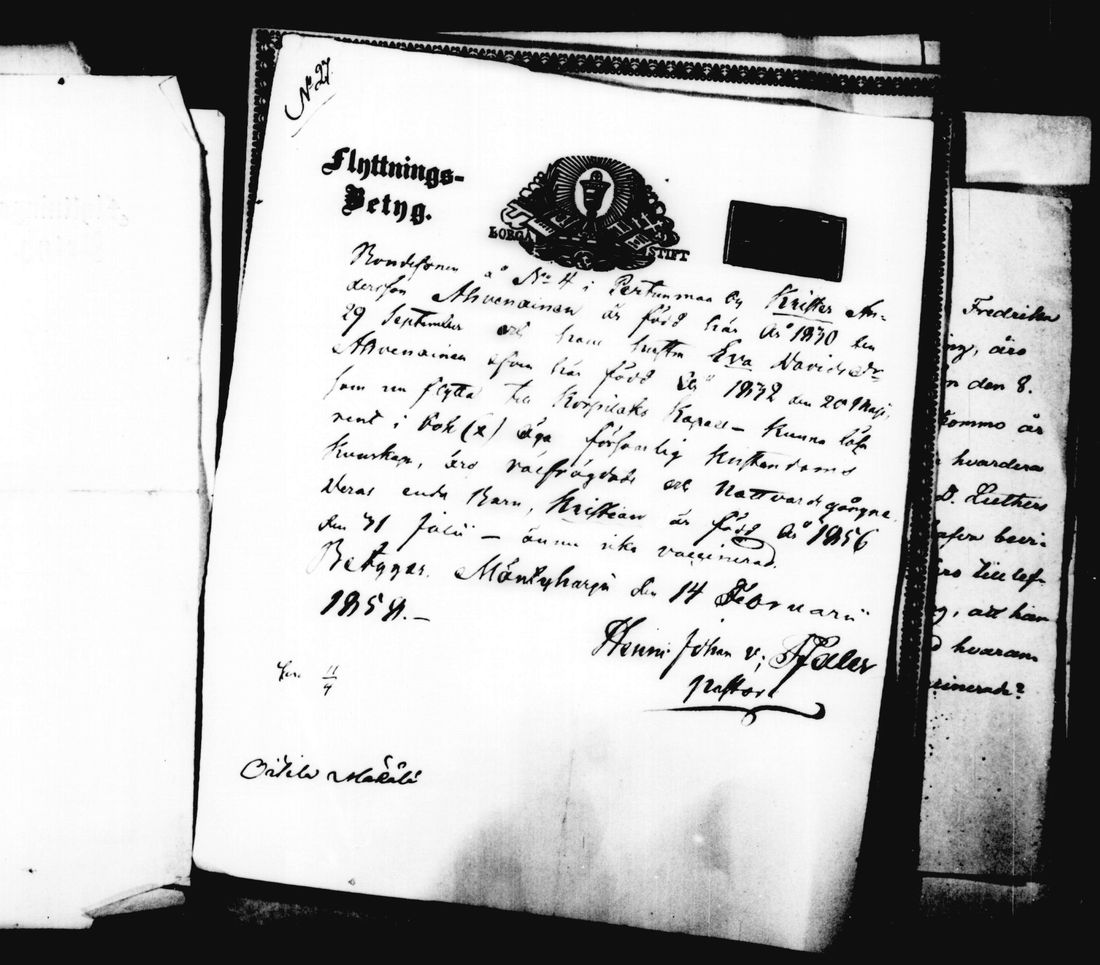 No 27.
Flyttnings-
Betyg.
BORGÅ STIFT
Bondesonen å No 4 i Pertunmaa by Krister An-
dersson Ahvenainen är född här År 1830 den
29 September och hans hustru Eva Davidsdr
Ahvenainen äfven här född År 1832 den 20 Maji,
som nu flytta till Kapell – Kunna läsa
rent i bok (x) äga försvarlig Kristendoms
Kunskap, äro välfrägdade och Nattvardsgångne.
Deras enda Barn, Kristian är född År 1856
den 31 Julii – ännu icke vaccinerad.
Betygar. Mäntyharju den 14 Februarii
1858.–
Henric Johan v;
Pastor
11/4
Mäkälä
Fredrika
äro
den 8.
kommo år
hvardera
D. Luthers
att han
hvaram